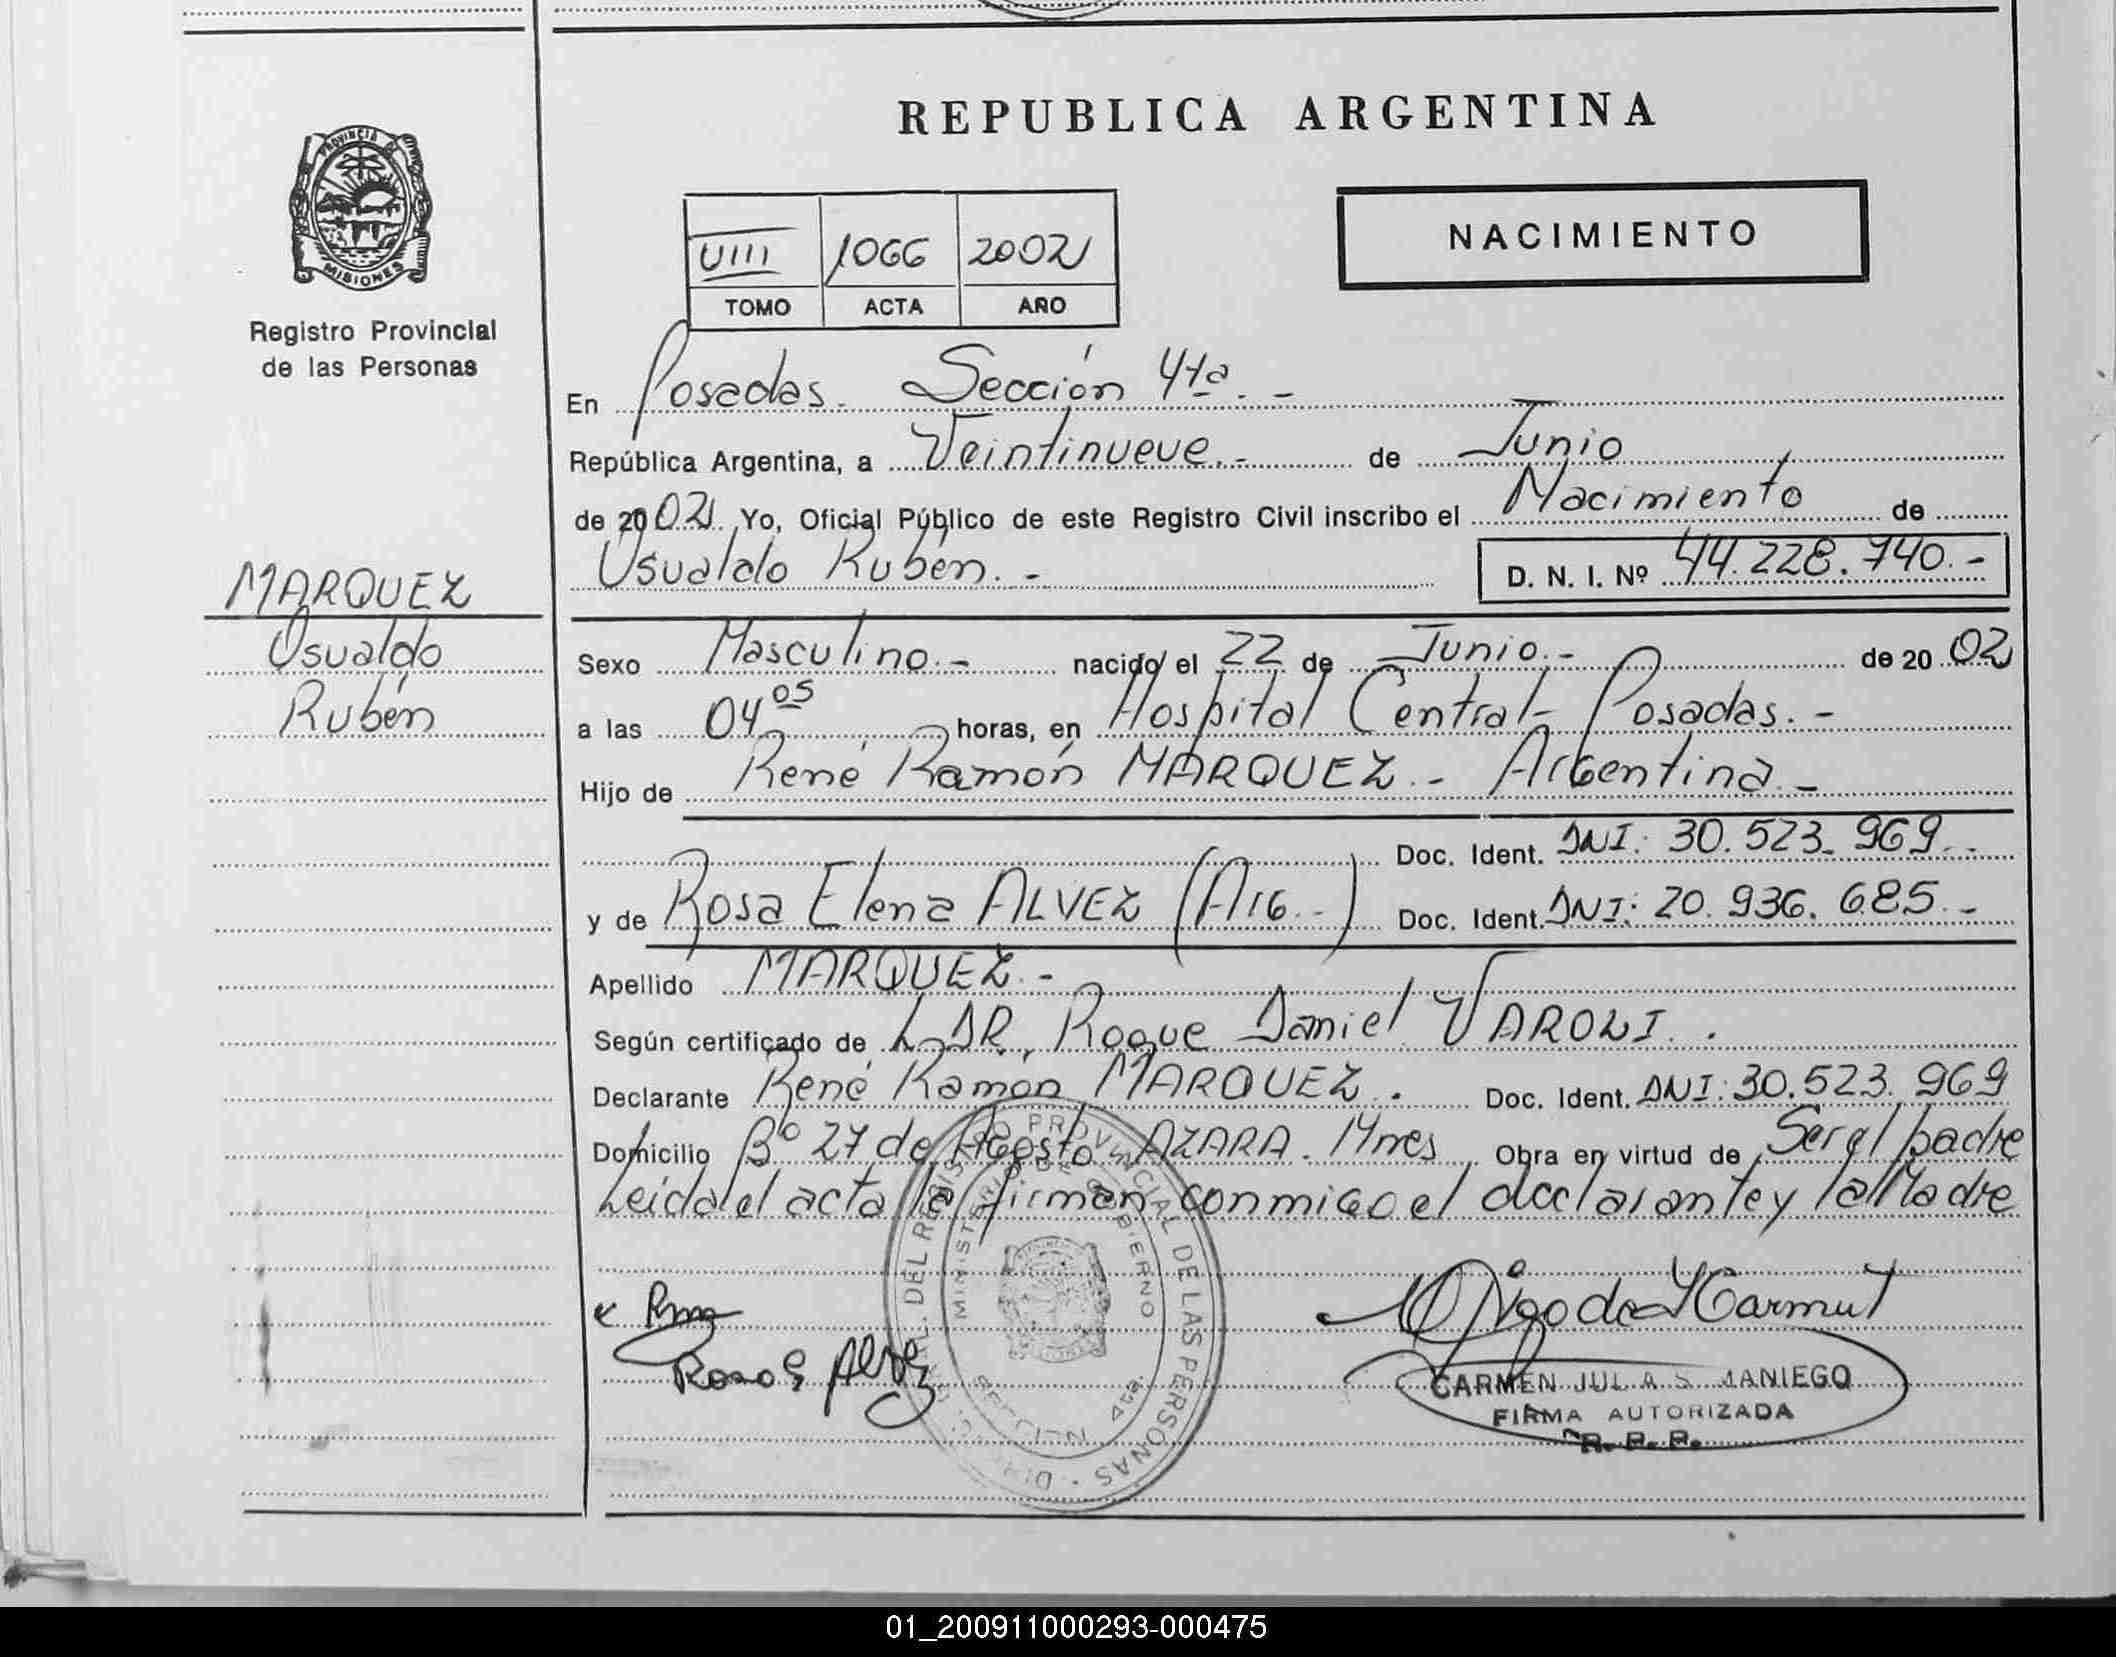 REPUBLICA ARGENTINA
PROVINCIA DE MISIONES
Registro Provincial
de las Personas
VIII 1066 2002
TOMO ACTA AÑO
NACIMIENTO
En Posadas. Sección 4ta. -
República Argentina, a Veintinueve. - de Junio
de 2002 Yo, Oficial Público de este Registro Civil inscribo el Nacimiento de
Osvaldo Rubén. - D. N. I. Nº 44.228.740. -
MARQUEZ
Osvaldo
Rubén
Sexo Masculino. - nacido el 22 de Junio. - de 2002
a las 04 05 horas, en Hospital Central - Posadas. -
Hijo de René Ramón MARQUEZ. - Argentina. -
Doc. Ident. DNI: 30.523.969. -
y de Rosa Elena ALVEZ (Arg. -) Doc. Ident. DNI: 20.936.685. -
Apellido MARQUEZ. -
Según certificado de DR. Roque Daniel
Declarante René Ramón MARQUEZ. Doc. Ident. DNI: 30.523.969
Domicilio Bº 27 de Agosto AZARA. Mnes Obra en virtud de Ser el padre
Leida el acta la firman conmigo el declarante y la Madre
Rosa E Alvez
DEL REGISTRO PROVINCIAL DE LAS PERSONAS
MINISTERIO DE GOBIERNO
SECCION 4ta.
CARMEN JULIA SAMANIEGO
FIRMA AUTORIZADA
R. P. P.
01_200911000293-000475